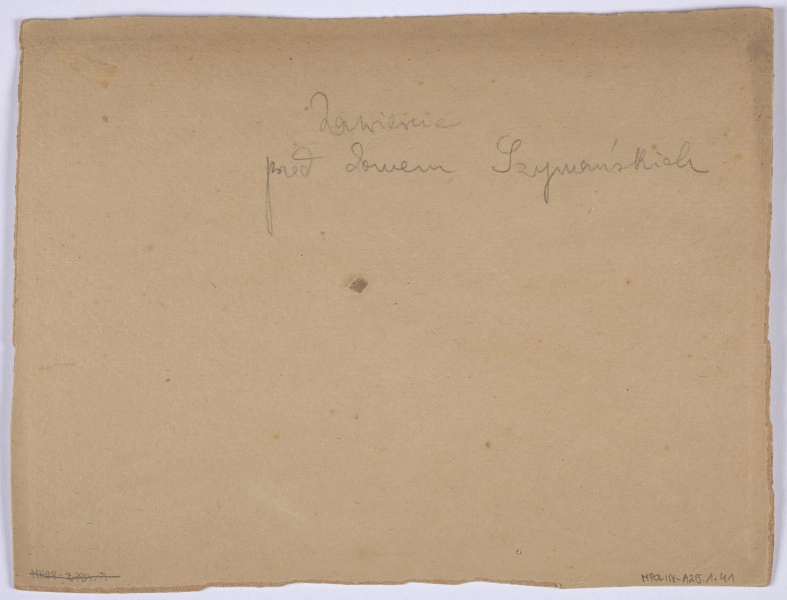 Zawieście
przed domem Szymańskich
MPOLIN-A25.1.41